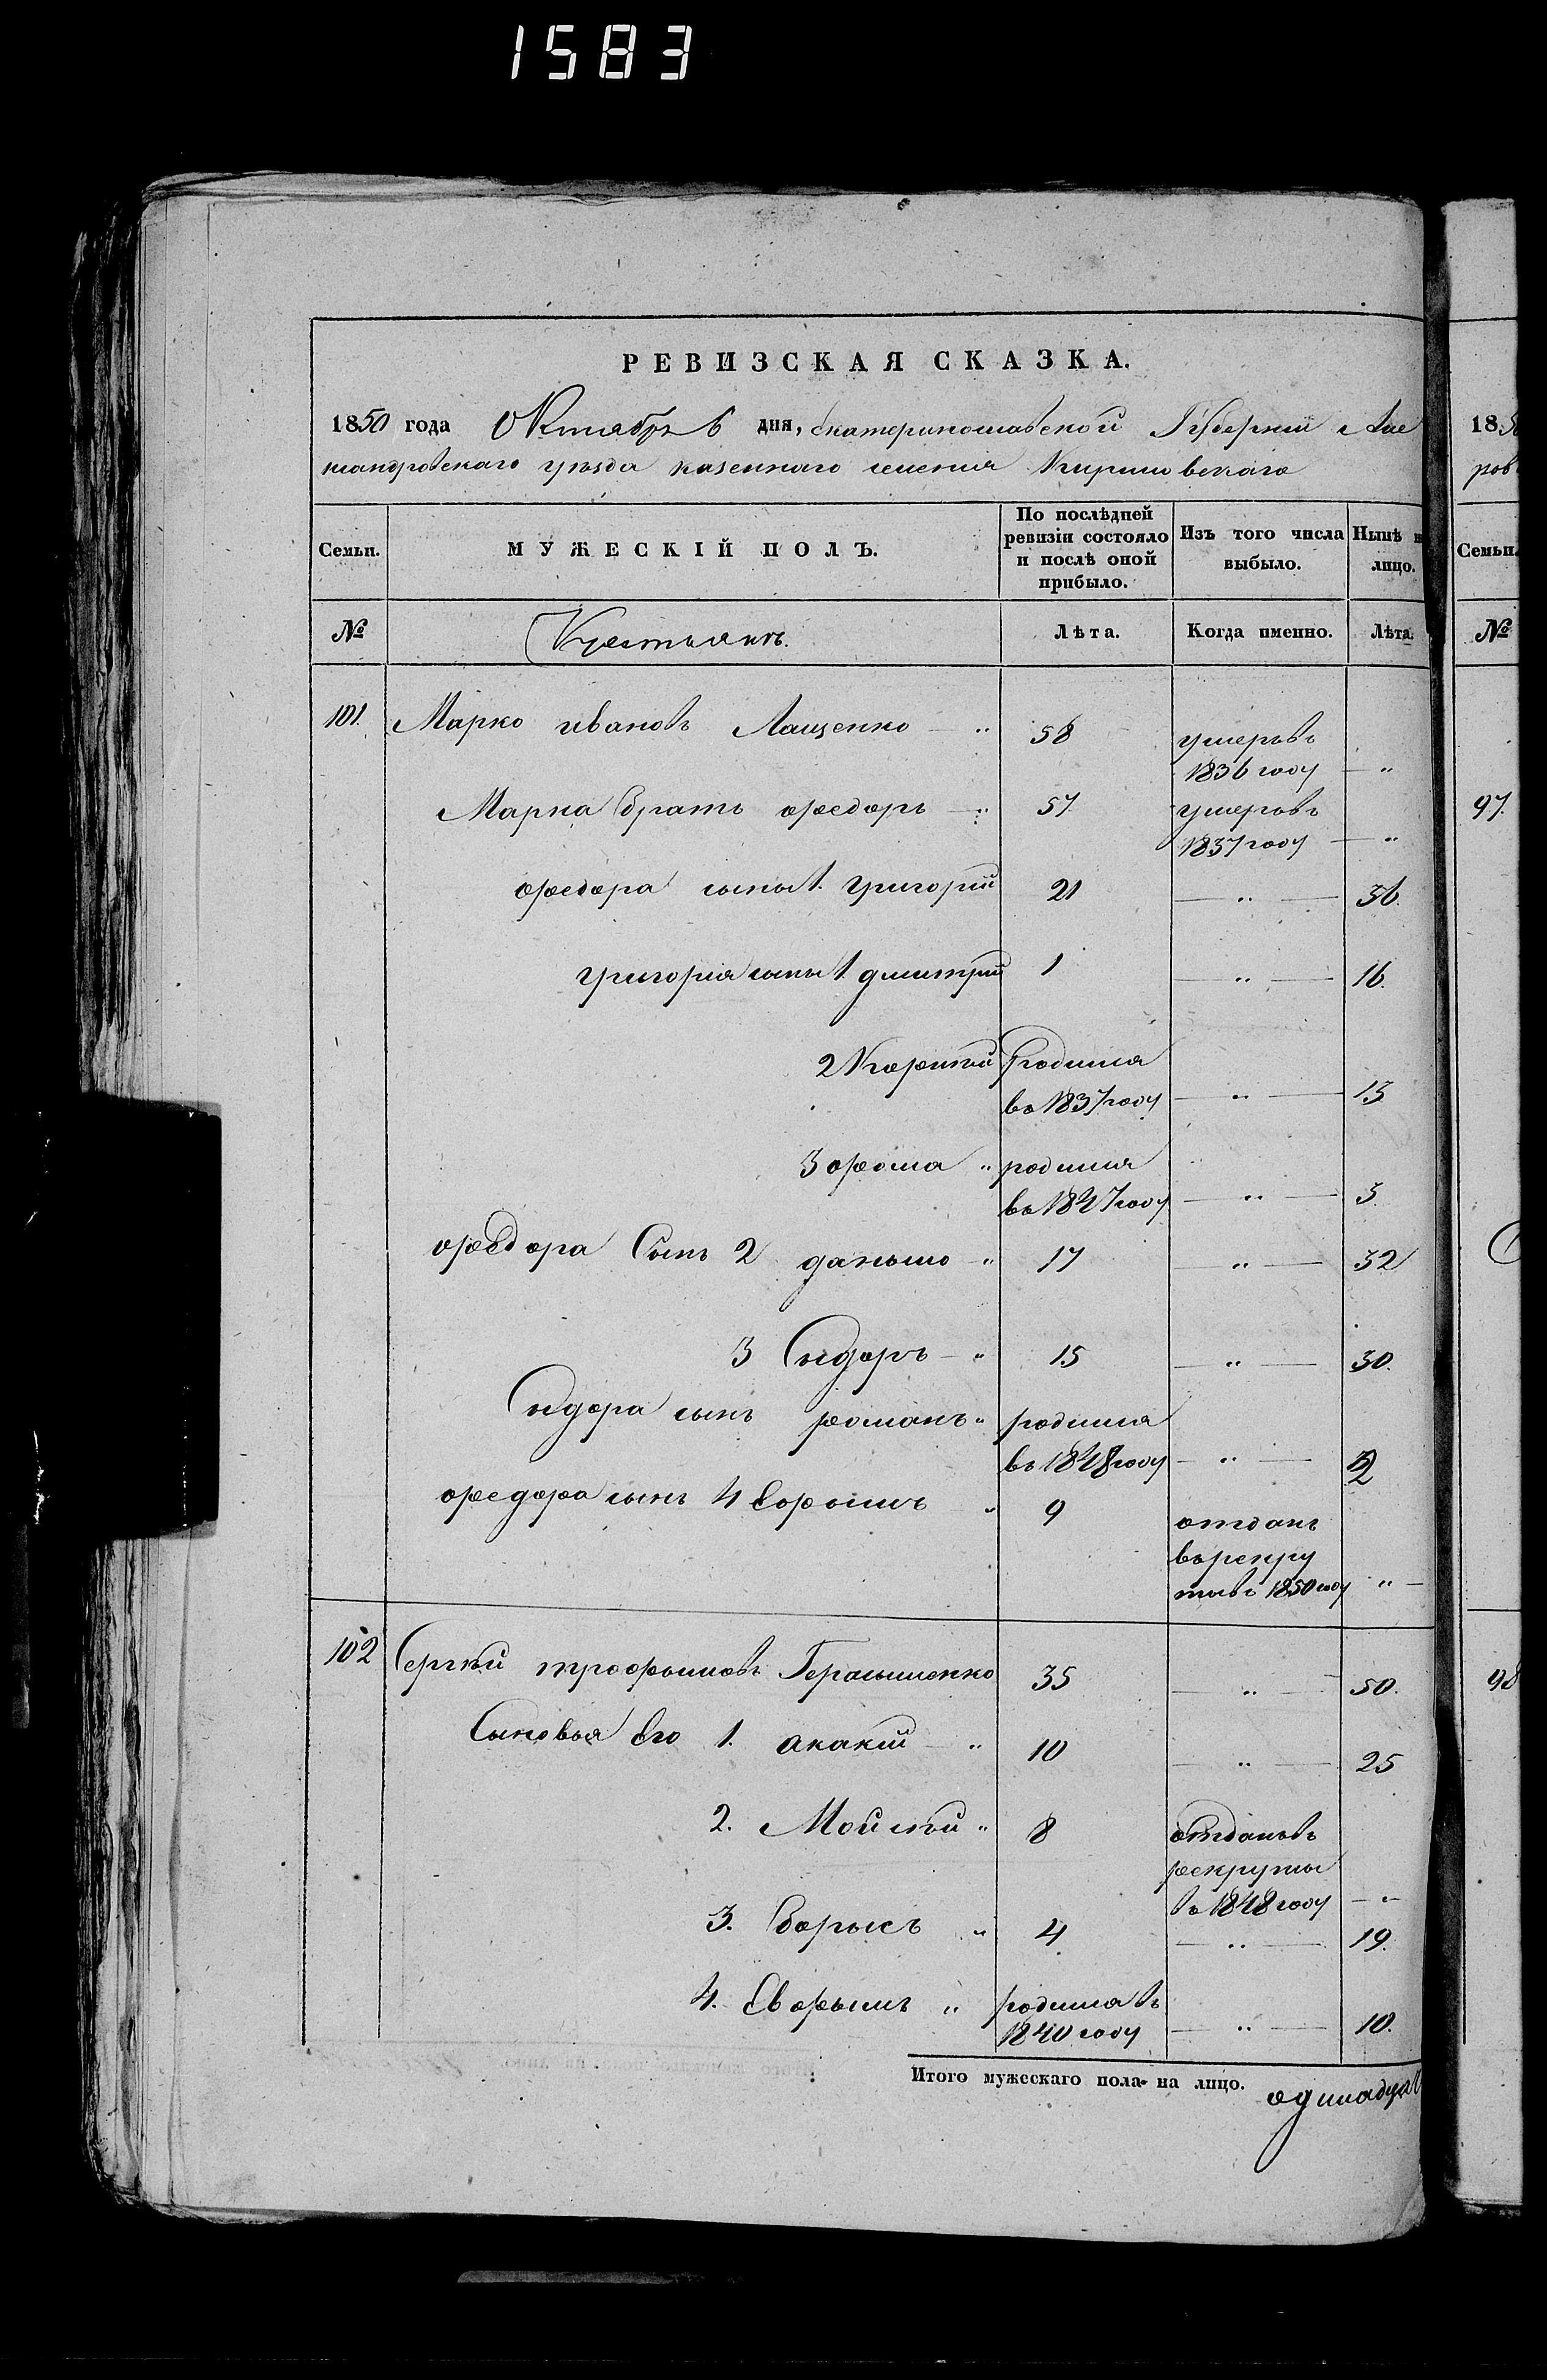 1583
РЕВИЗСКАЯ СКАЗКА.
1850 года Октября 6 дня, Екатеринославской Губернии Алек
сандровскаго уѣзда казеннаго селения
Семьи. МУЖЕСКІЙ ПОЛЪ. По послѣдней ревизіи состояло и послѣ оной прибыло. Изъ того числа выбыло. Нынѣ н лицо.
№ Крестьянъ. Лѣта. Когда именно. Лѣта.
101. Марко ивановъ Лащенко — " 58 умеръ въ
1836 году — "
Марка братъ федоръ — " 57. умеръ въ
1837 году — "
федора сыны 1. григорій 21 — " — 36.
григория сыны 1. дмитрий 1 — " — 16.
2 Кофитий родился
въ 1837 году — " — 13
3 фома " родился
въ 1847 году — " — 3.
федора Сынъ 2 данило " 17 — " — 32
3 Сидоръ — " 15 — " — 30.
Сидора сынъ романъ " родился
въ 1848 году — " — 2
федора сынъ 4 Ефимъ " 9 отданъ
въ рекру
ты въ 1850 году " —
102 Сергѣй трофимовъ Герасименко 35 — " — 50.
Сыновья Его 1. акакий — " 10 — " — 25
2. Мойсѣй " 8 отданъ въ
рекруты
въ 1848 году — " —
3. борисъ " 4. — " — 19.
4. Ефимъ " родился въ
1840 году — " — 10.
Итого мужескаго пола на лицо. одинадца
18 50
ров
Семьи.
№
97.
98